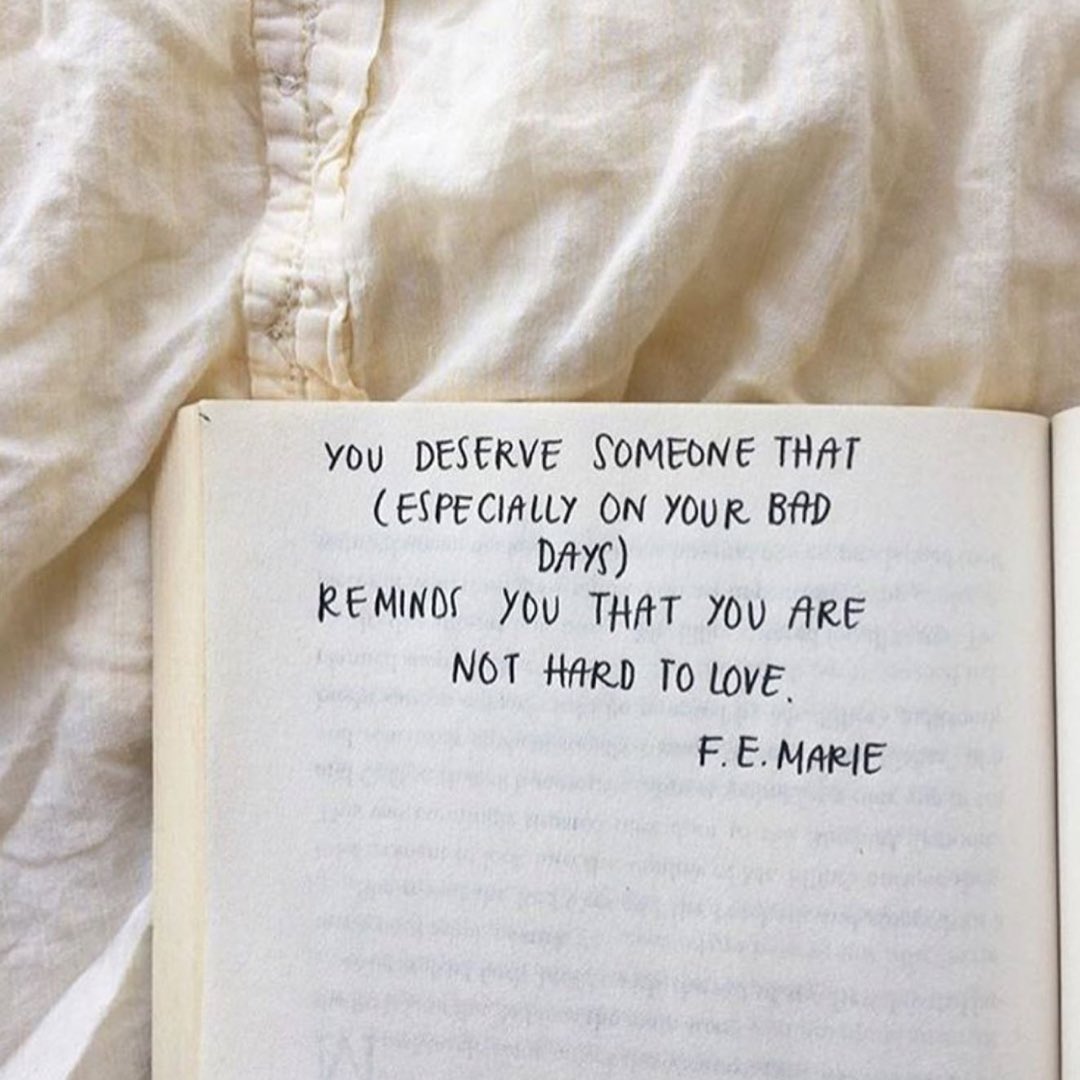 YOU DESERVE SOMEONE THAT
(ESPECIALLY ON YOUR BAD
DAYS)
REMINDS YOU THAT YOU ARE
NOT HARD TO LOVE.
F.E. MARIE